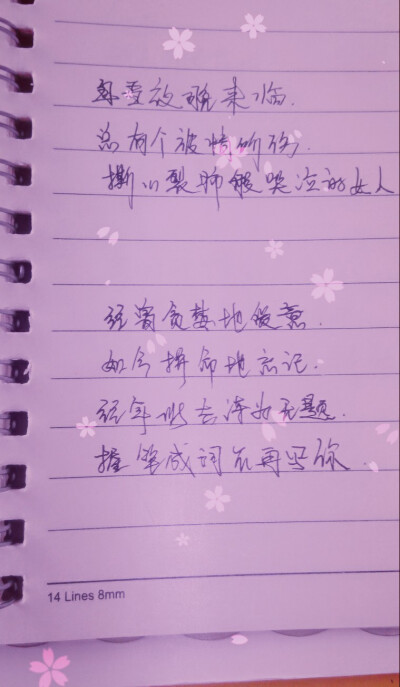 每夜来临.
总有个被情所伤.
撕心裂肺般哭泣的女人
经曾贪婪地爱意.
如今拼命地忘记.
经年此去淨如无题.
提笔成词不再写你
14 Lines 8mm